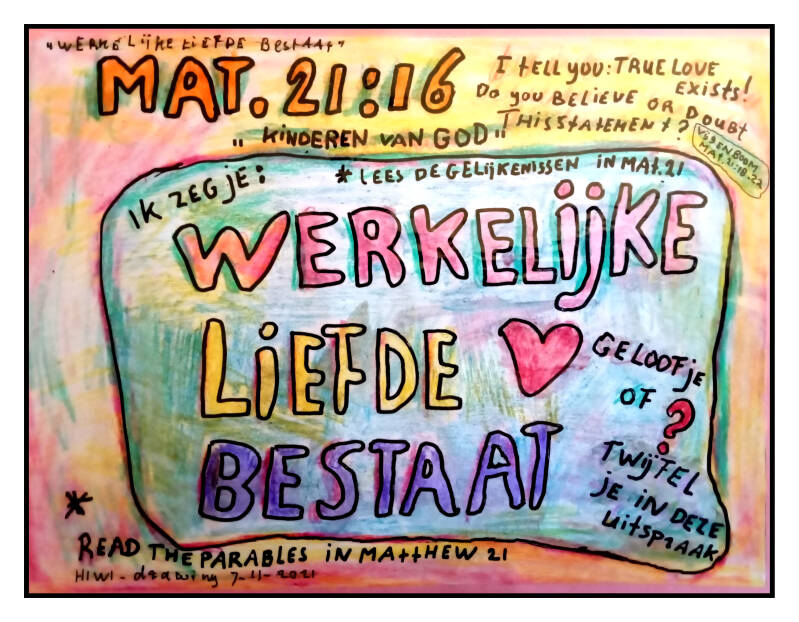 "WERKELIJKE LIEFDE BESTAAT"
MAT. 21:16
"KINDEREN VAN GOD"
I TELL YOU: TRUE LOVE
EXISTS!
DO YOU BELIEVE OR DOUBT
THIS STATEMENT?
VIJGENBOOM
MAT. 21:18-22
IK ZEG JE:
* LEES DE GELIJKENISSEN IN MAT. 21
WERKELIJKE
LIEFDE
BESTAAT
GELOOF JE
OF
?
TWIJFEL
JE IN DEZE
UITSPRAAK
*
READ THE PARABLES IN MATTHEW 21
HIWI - drawing 7-11-2021